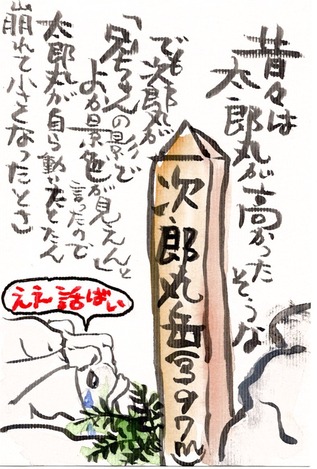 昔々は
太郎丸が高かった
そうな
でも次郎丸が
「兄ちゃんの影で
よか景色が見えんと」
言たので
太郎丸が自ら動いたとたん
崩れて小さくなったとさ
次郎丸岳(397m)
ええ話ばい